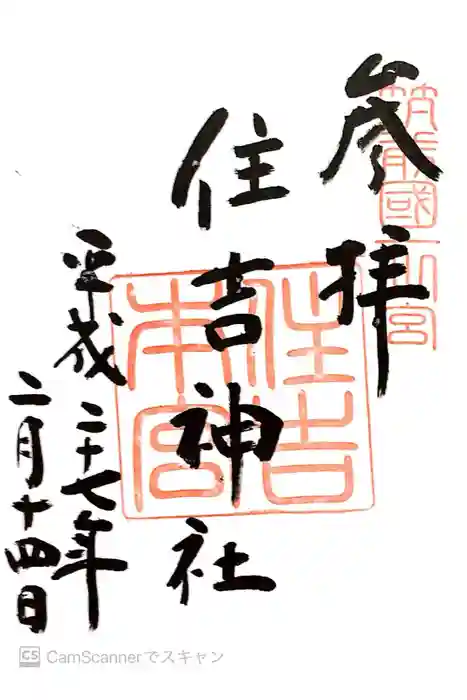 参拝
筑前國一之宮
住吉神社
住吉本宮
平成二十七年
二月十四日
CS CamScannerでスキャン